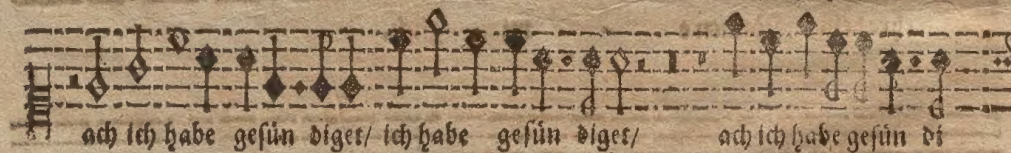 ach ich habe gesün diget/ ich habe gesün diget/ ach ich habe gesün di